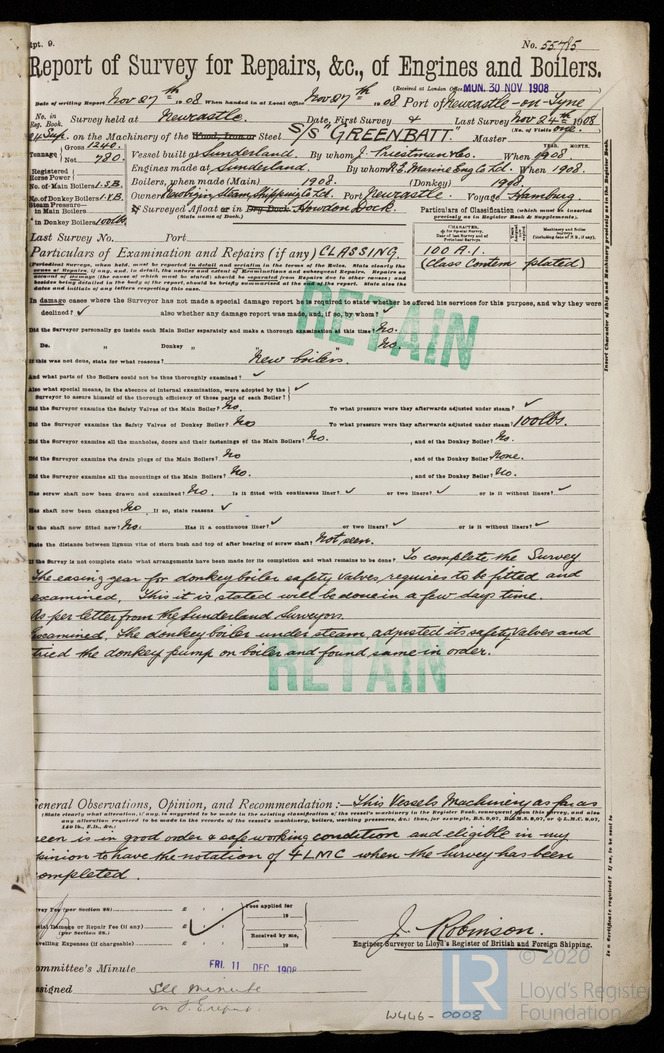 Rpt. 9.
No. 55785
Report of Survey for Repairs, &c., of Engines and Boilers.
(Received at London Office MON. 30 NOV 1908
Date of writing Report Nov 27th 1908 When handed in at Local Office Nov 27th 1908 Port of Newcastle-on-Tyne
No. in Reg. Book. Survey held at Newcastle. Date, First Survey & Last Survey Nov 24th 1908
(No. of Visits one.)
24 Sup. on the Machinery of the Wood, Iron or Steel S/S "GREENBATT." Master
Tonnage Gross 1240. Net 780. Vessel built at Sunderland. By whom J. Priestman & Co. When 1908.
YEAR. MONTH.
Registered Horse Power Engines made at Sunderland. By whom N.E. Marine Eng Co Ltd. When 1908.
No. of Main Boilers 1.S.B. Boilers, when made (Main) 1908. (Donkey) 1908.
No. of Donkey Boilers 1.V.B. Owners Steam Shipping Co Ltd. Port Newcastle. Voyage Hamburg.
Steam Pressure— in Main Boilers
in Donkey Boilers 100 lbs.
If Surveyed Afloat or in Dry Dock Howdon Dock.
(State name of Dock.)
Particulars of Classification (which must be inserted precisely as in Register Book & Supplements).
Last Survey No. Port
Particulars of Examination and Repairs (if any) CLASSING.
100 A.1.
(Class Contem plated)
RETAIN
In damage cases where the Surveyor has not made a special damage report he is required to state whether he offered his services for this purpose, and why they were
declined? ✓ also whether any damage report was made, and, if so, by whom? ✓
Did the Surveyor personally go inside each Main Boiler separately and make a thorough examination at this time? No.
Do. „ Donkey „ „ No.
If this was not done, state for what reasons? New boilers.
And what parts of the Boilers could not be thoroughly examined? ✓
Also what special means, in the absence of internal examination, were adopted by the
Surveyor to assure himself of the thorough efficiency of those parts of each Boiler? ✓
Did the Surveyor examine the Safety Valves of the Main Boiler? No. To what pressure were they afterwards adjusted under steam? ✓
Did the Surveyor examine the Safety Valves of Donkey Boiler? To what pressure were they afterwards adjusted under steam? 100 lbs.
Did the Surveyor examine all the manholes, doors and their fastenings of the Main Boilers? No. , and of the Donkey Boiler? No.
Did the Surveyor examine the drain plugs of the Main Boilers? No , and of the Donkey Boiler? None.
Did the Surveyor examine all the mountings of the Main Boilers? No. , and of the Donkey Boiler? No.
Has screw shaft now been drawn and examined? No. Is it fitted with continuous liner? ✓ or two liners? ✓ or is it without liners? ✓
Has shaft now been changed? No If so, state reasons ✓
Is the shaft now fitted new? No. Has it a continuous liner? ✓ or two liners? ✓ or is it without liners? ✓
State the distance between lignum vitæ of stern bush and top of after bearing of screw shaft? Not seen.
If the Survey is not complete state what arrangements have been made for its completion and what remains to be done? To complete the Survey
The easing gear for donkey boiler safety valves, requires to be fitted and
examined. This it is stated will be done in a few days time.
As per letter from the Sunderland Surveyors.
Examined, the donkey boiler under steam, adjusted its safety valves and
tried the donkey pump on boiler and found same in order.
RETAIN
General Observations, Opinion, and Recommendation:— This Vessels Machinery as far as
(State clearly what alteration, if any, is suggested to be made in the existing classification of the vessel's machinery in the Register Book, consequent upon this survey, and also
any alteration required to be made in the records of the vessel's machinery, boilers, working pressures, &c.; thus, for example,
seen is in good order & safe working condition and eligible in my
opinion to have the notation of + LMC when the Survey has been
completed.
Survey Fee (per Section 28) £ : : Fees applied for
Special Damage or Repair Fee (if any) (per Section 28.) £ : : 19
Travelling Expenses (if chargeable) £ : : Received by me, 19
J. Robinson.
Engineer Surveyor to Lloyd's Register of British and Foreign Shipping.
Committee's Minute FRI. 11 DEC 1908
Assigned See minute
on
Insert Character of Ship and Machinery precisely as in the Register Book.
Is a Certificate required? If so, to be sent to
© 2020
LR
Lloyd's Register
Foundation
W446-0008